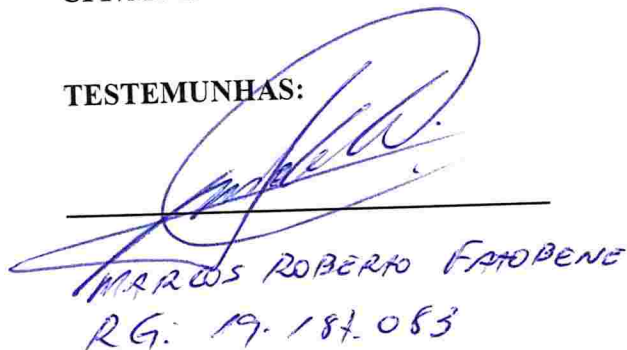 TESTEMUNHAS:
MARCOS ROBERTO FATOBENE
RG: 19.187.083